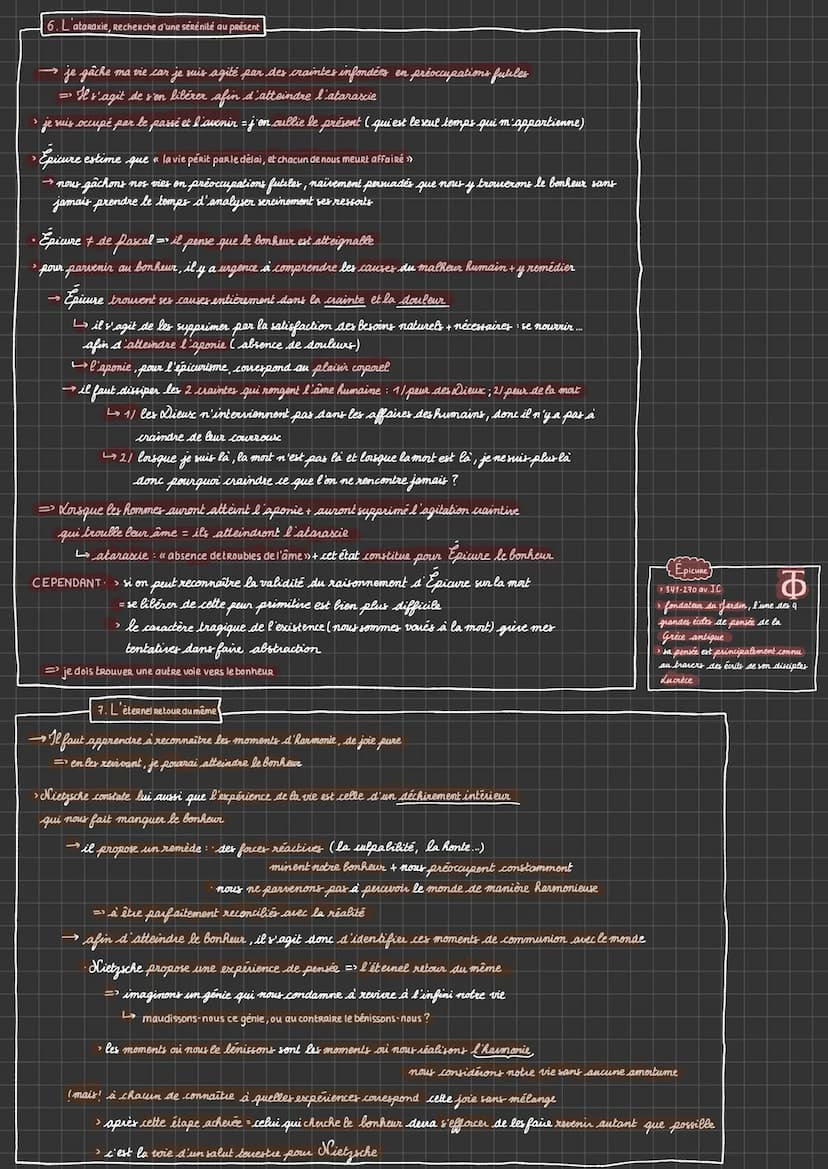 6. L'ataraxie, recherche d'une sérénité au présent
→ je gâche ma vie car je suis agité par des craintes infondées en préoccupations futiles
=> Il s'agit de s'en libérer afin d'atteindre l'atarascie
> je suis occupé par le passé et l'avenir = j'en oublie le présent ( qui est le seul temps qui m'appartienne)
> Épicure estime que « la vie périt par le délai, et chacun de nous meurt affairé »
→ nous gâchons nos vies en préoccupations futiles, naïvement persuadés que nous y trouverons le bonheur sans
jamais prendre le temps d'analyser sereinement ses ressorts
• Épicure ≠ de Pascal => il pense que le bonheur est atteignable
> pour parvenir au bonheur, il y a urgence à comprendre les causes du malheur humain + y remédier
→ Épicure trouvent ses causes entièrement dans la crainte et la douleur
↳ il s'agit de les supprimer par la satisfaction des besoins naturels + nécessaires : se nourrir...
afin d'atteindre l'aponie ( absence de douleurs)
↳ l'aponie, pour l'épicurisme, correspond au plaisir corporel
→ il faut dissiper les 2 craintes qui rongent l'âme humaine : 1/ peur des Dieux ; 2/ peur de la mort
↳ 1/ les Dieux n'interviennent pas dans les affaires des humains, donc il n'y a pas à
craindre de leur courroux
↳ 2/ lorsque je suis là, la mort n'est pas là et lorsque la mort est là, je ne suis plus là
donc pourquoi craindre ce que l'on ne rencontre jamais ?
=> Lorsque les hommes auront atteint l'aponie + auront supprimé l'agitation craintive
qui trouble leur âme = ils atteindront l'atarascie
↳ atarascie : « absence de troubles de l'âme » + cet état constitue pour Épicure le bonheur
CEPENDANT • > si on peut reconnaître la validité du raisonnement d'Épicure sur la mort
= se libérer de cette peur primitive est bien plus difficile
> le caractère tragique de l'existence ( nous sommes voués à la mort) grève mes
tentatives d'en faire abstraction
=> je dois trouver une autre voie vers le bonheur
Épicure
> 341-270 av. JC
> fondateur du Jardin, l'une des 4
grandes écoles de pensée de la
Grèce antique
> sa pensée est principalement connu
au travers des écrits de son disciples
Lucrèce
7. L'éternel retour du même
→ Il faut apprendre à reconnaître les moments d'harmonie, de joie pure
=> en les revivant, je pourrai atteindre le bonheur
> Nietzsche constate lui aussi que l'expérience de la vie est celle d'un déchirement intérieur
qui nous fait manquer le bonheur
→ il propose un remède : • des forces réactives ( la culpabilité, la honte...)
minent notre bonheur + nous préoccupent constamment
• nous ne parvenons pas à percevoir le monde de manière harmonieuse
=> à être parfaitement réconciliés avec la réalité
→ afin d'atteindre le bonheur, il s'agit donc d'identifier ces moments de communion avec le monde
• Nietzsche propose une expérience de pensée => l'éternel retour du même
=> imaginons un génie qui nous condamne à revivre à l'infini notre vie
↳ maudissons-nous ce génie, ou au contraire le bénissons-nous ?
> les moments où nous le bénissons sont les moments où nous réalisons l'harmonie,
nous considérons notre vie sans aucune amertume
! mais ! à chacun de connaître à quelles expériences correspond cette joie sans mélange
> après cette étape achevée = celui qui cherche le bonheur devra s'efforcer de les faire revenir autant que possible
> c'est la voie d'un salut terrestre pour Nietzsche